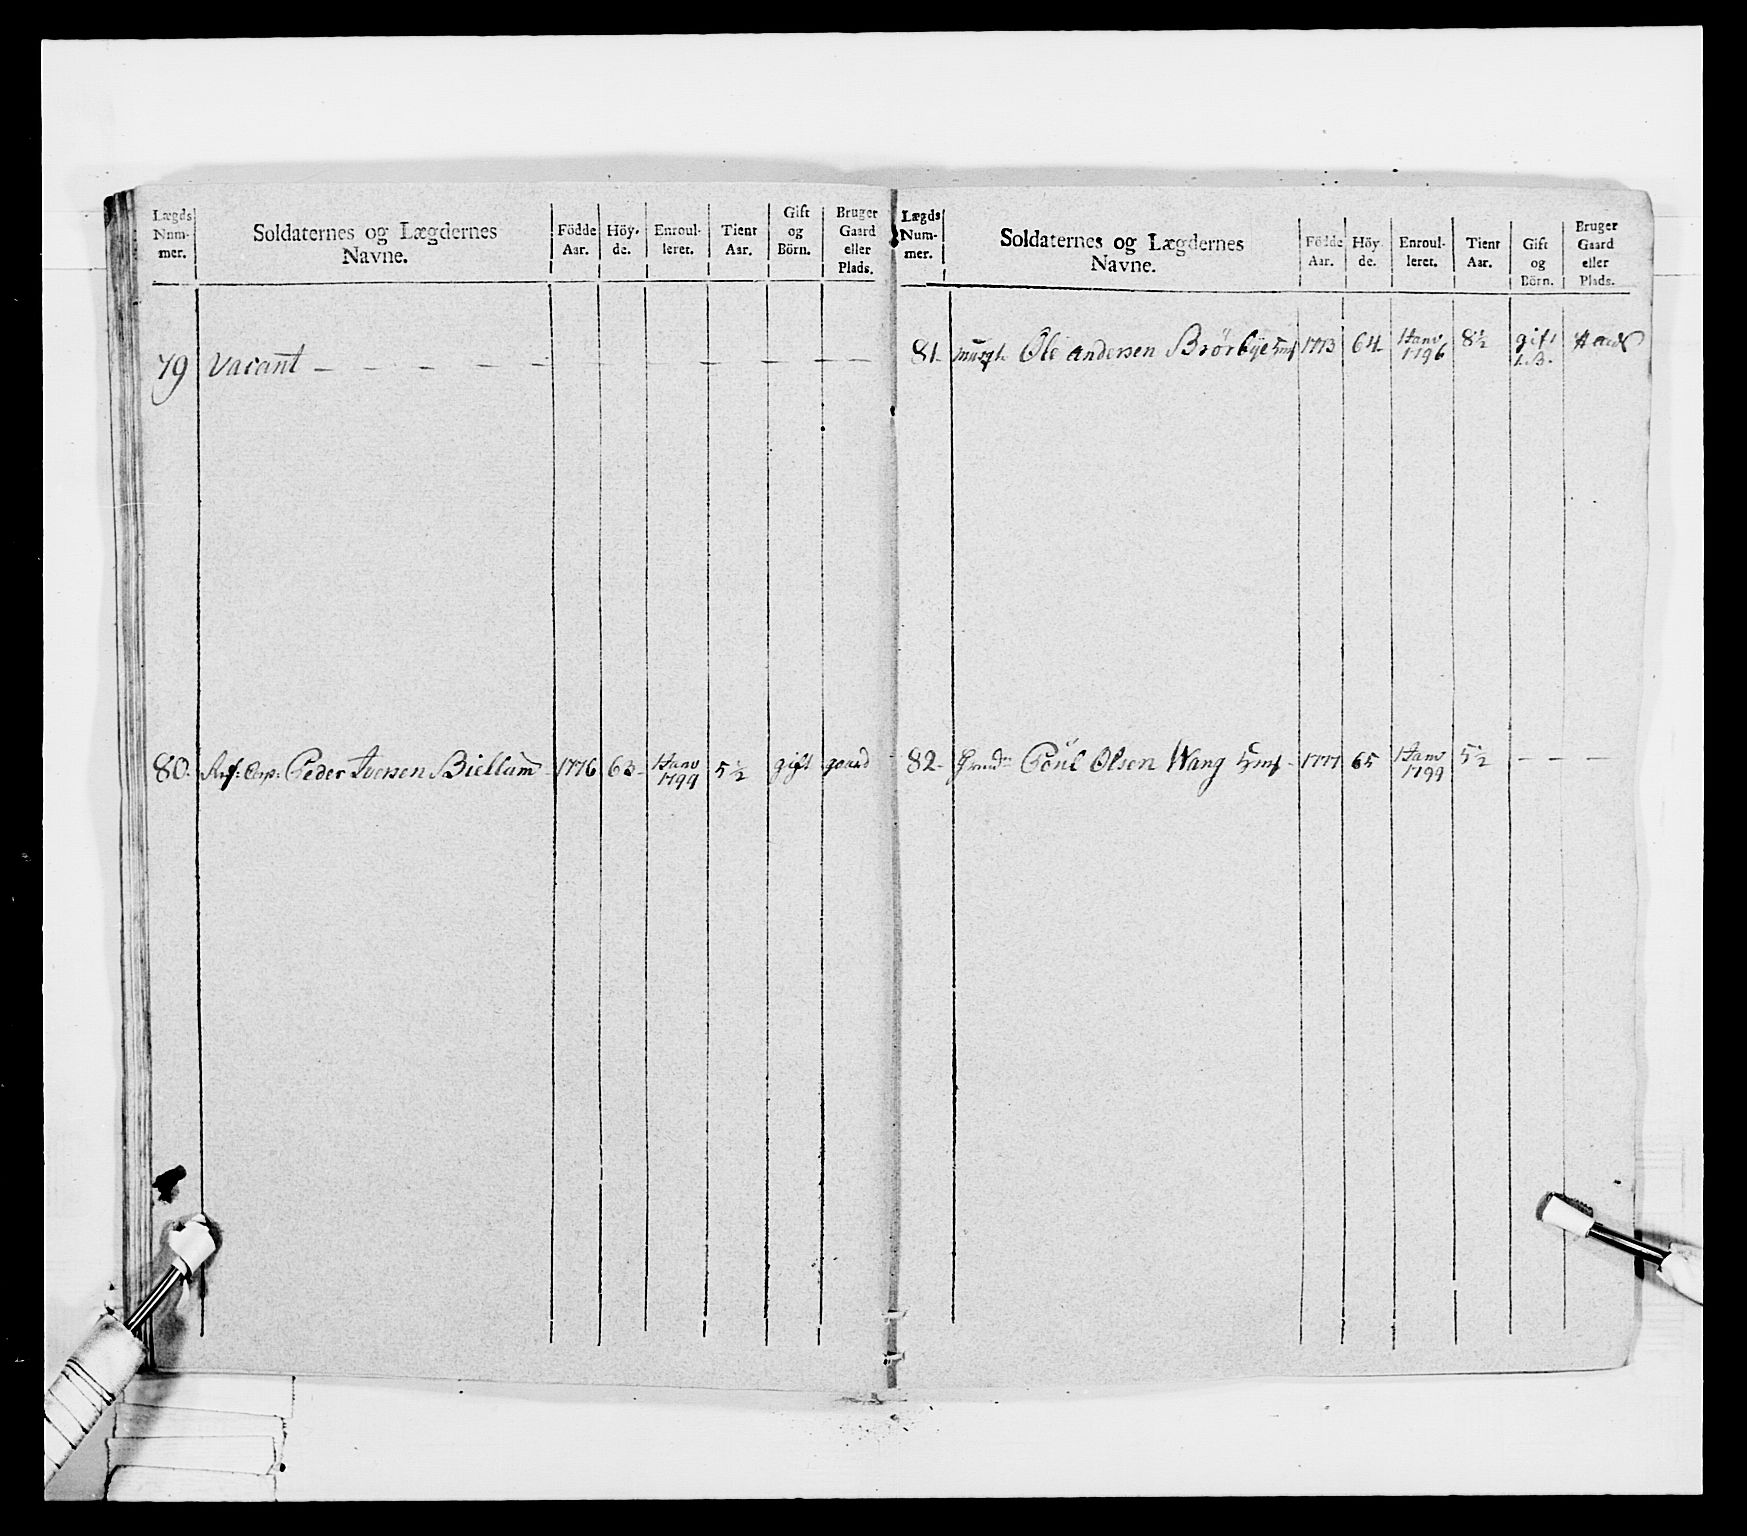 Lægds Num- mer.
Soldaternes og Lægdernes Navne.
Födde Aar.
Höy- de.
Enroul- leret.
Tient Aar.
Gift og Börn.
Bruger Gaard eller Plads.
79 Vacant — — — — — — — — — —
80. Peder Iversen Biellum 1776 63 1 Janv 1799 5½ gift gaard
Lægds Num- mer.
Soldaternes og Lægdernes Navne.
Födde Aar.
Höy- de.
Enroul- leret.
Tient Aar.
Gift og Börn.
Bruger Gaard eller Plads.
81. Ole Andersen Brørbÿe 1773 64 1 Janv 1796 8½ gift 1. B.
82 Poul Olsen Wang 1777 65 1 Janv 1799 5½ — — —